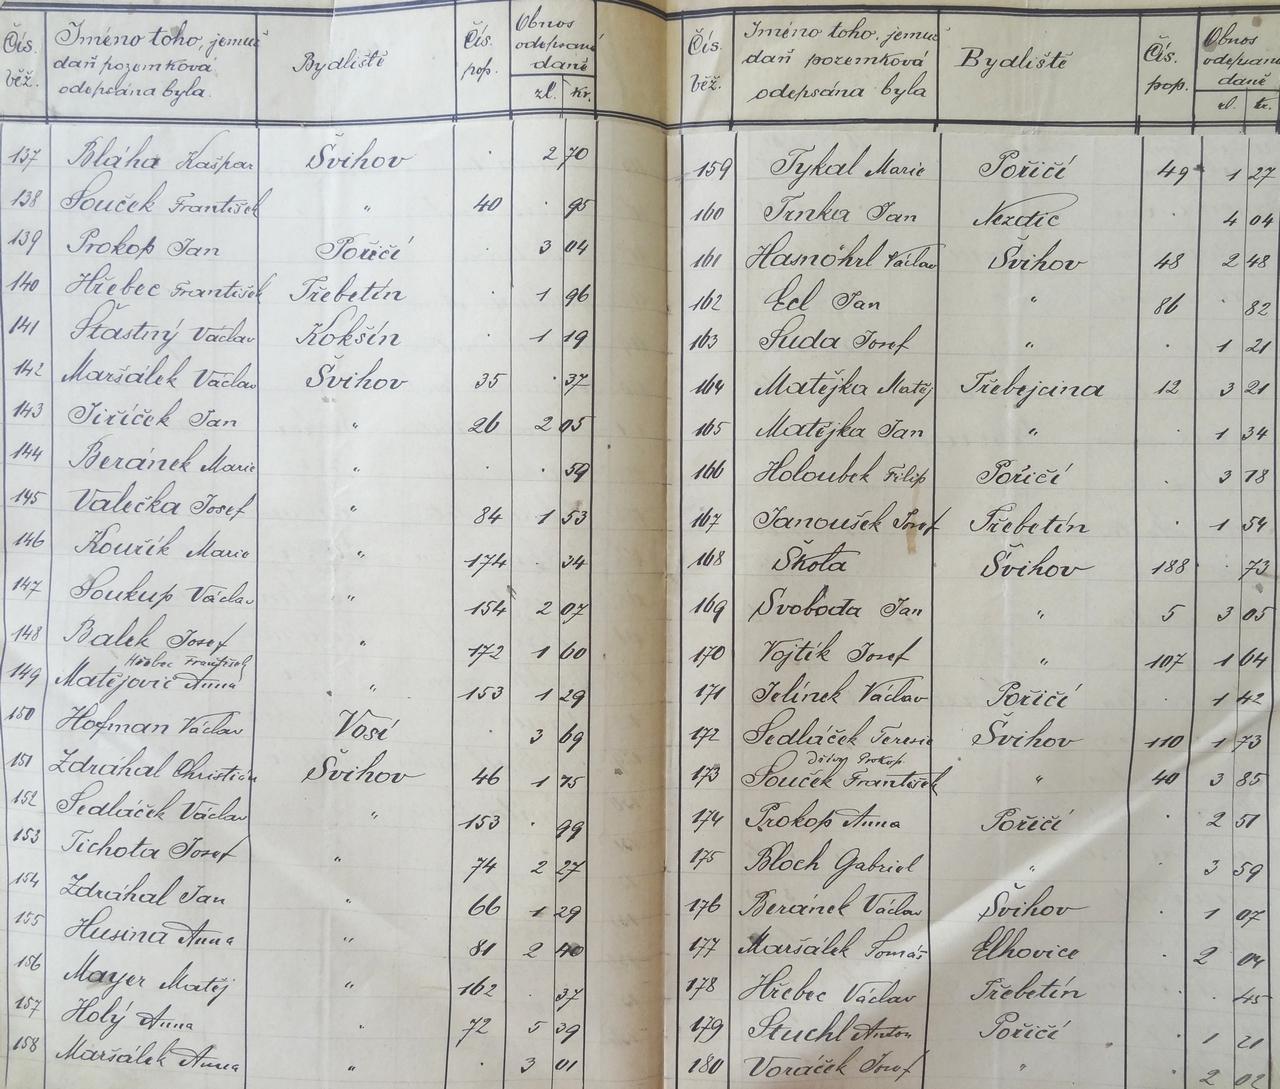 Čís. běž. Jméno toho, jemuž daň pozemková odepsána byla. Bydliště Čís. pop. Obnos odepsané daně zl. kr.
137 Bláha Kašpar Švihov . 2 70
138 Souček František " 40 . 95
139 Prokop Jan Poříčí . 3 04
140 Hřebec František Třebetín . 1 96
141 Štastný Václav Kokšín . 1 19
142 Maršálek Václav Švihov 35 . 37
143 Jiříček Jan " 26 2 05
144 Beránek Marie " . . 59
145 Valečka Josef " 84 1 53
146 Kouřík Marie " 174 . 34
147 Soukup Václav " 154 2 07
148 Balek Josef " 172 1 60
Hřebec František
149 Matějovic Anna " 153 1 29
150 Hofman Václav Vosí . 3 69
151 Zdráhal Christian Švihov 46 1 75
152 Sedláček Václav " 153 . 99
153 Tichota Josef " 74 2 27
154 Zdráhal Jan " 66 1 29
155 Husina Anna " 81 2 40
156 Mayer Matěj " 162 . 37
157 Holý Anna " 72 5 39
158 Maršálek Anna " . 3 01
Čís. běž. Jméno toho, jemuž daň pozemková odepsána byla Bydliště Čís. pop. Obnos odepsané daně zl. kr.
159 Tykal Marie Poříčí 49 1 27
160 Trnka Jan Nezdic . 4 04
161 Hasnöhrl Václav Švihov 48 2 48
162 Ecl Jan " 86 . 82
163 Suda Josef " . 1 21
164 Matějka Matěj Třebejcina 12 3 21
165 Matějka Jan " . 1 34
166 Holoubek Filip Poříčí . 3 18
167 Janoušek Josef Třebetín . 1 54
168 Škola Švihov 188 . 73
169 Svoboda Jan " 5 3 05
170 Vojtík Josef " 107 1 64
171 Jelínek Václav Poříčí . 1 42
172 Sedláček Teresie Švihov 110 1 73
Prokop
173 Souček František " 40 3 85
174 Prokop Anna Poříčí . 2 51
175 Bloch Gabriel " . 3 59
176 Beránek Václav Švihov . 1 07
177 Maršálek Tomáš Elhovice . 2 04
178 Hřebec Václav Třebetín . . 45
179 Stuchl Anton Poříčí . 1 21
180 Voráček Josef " . 2 02